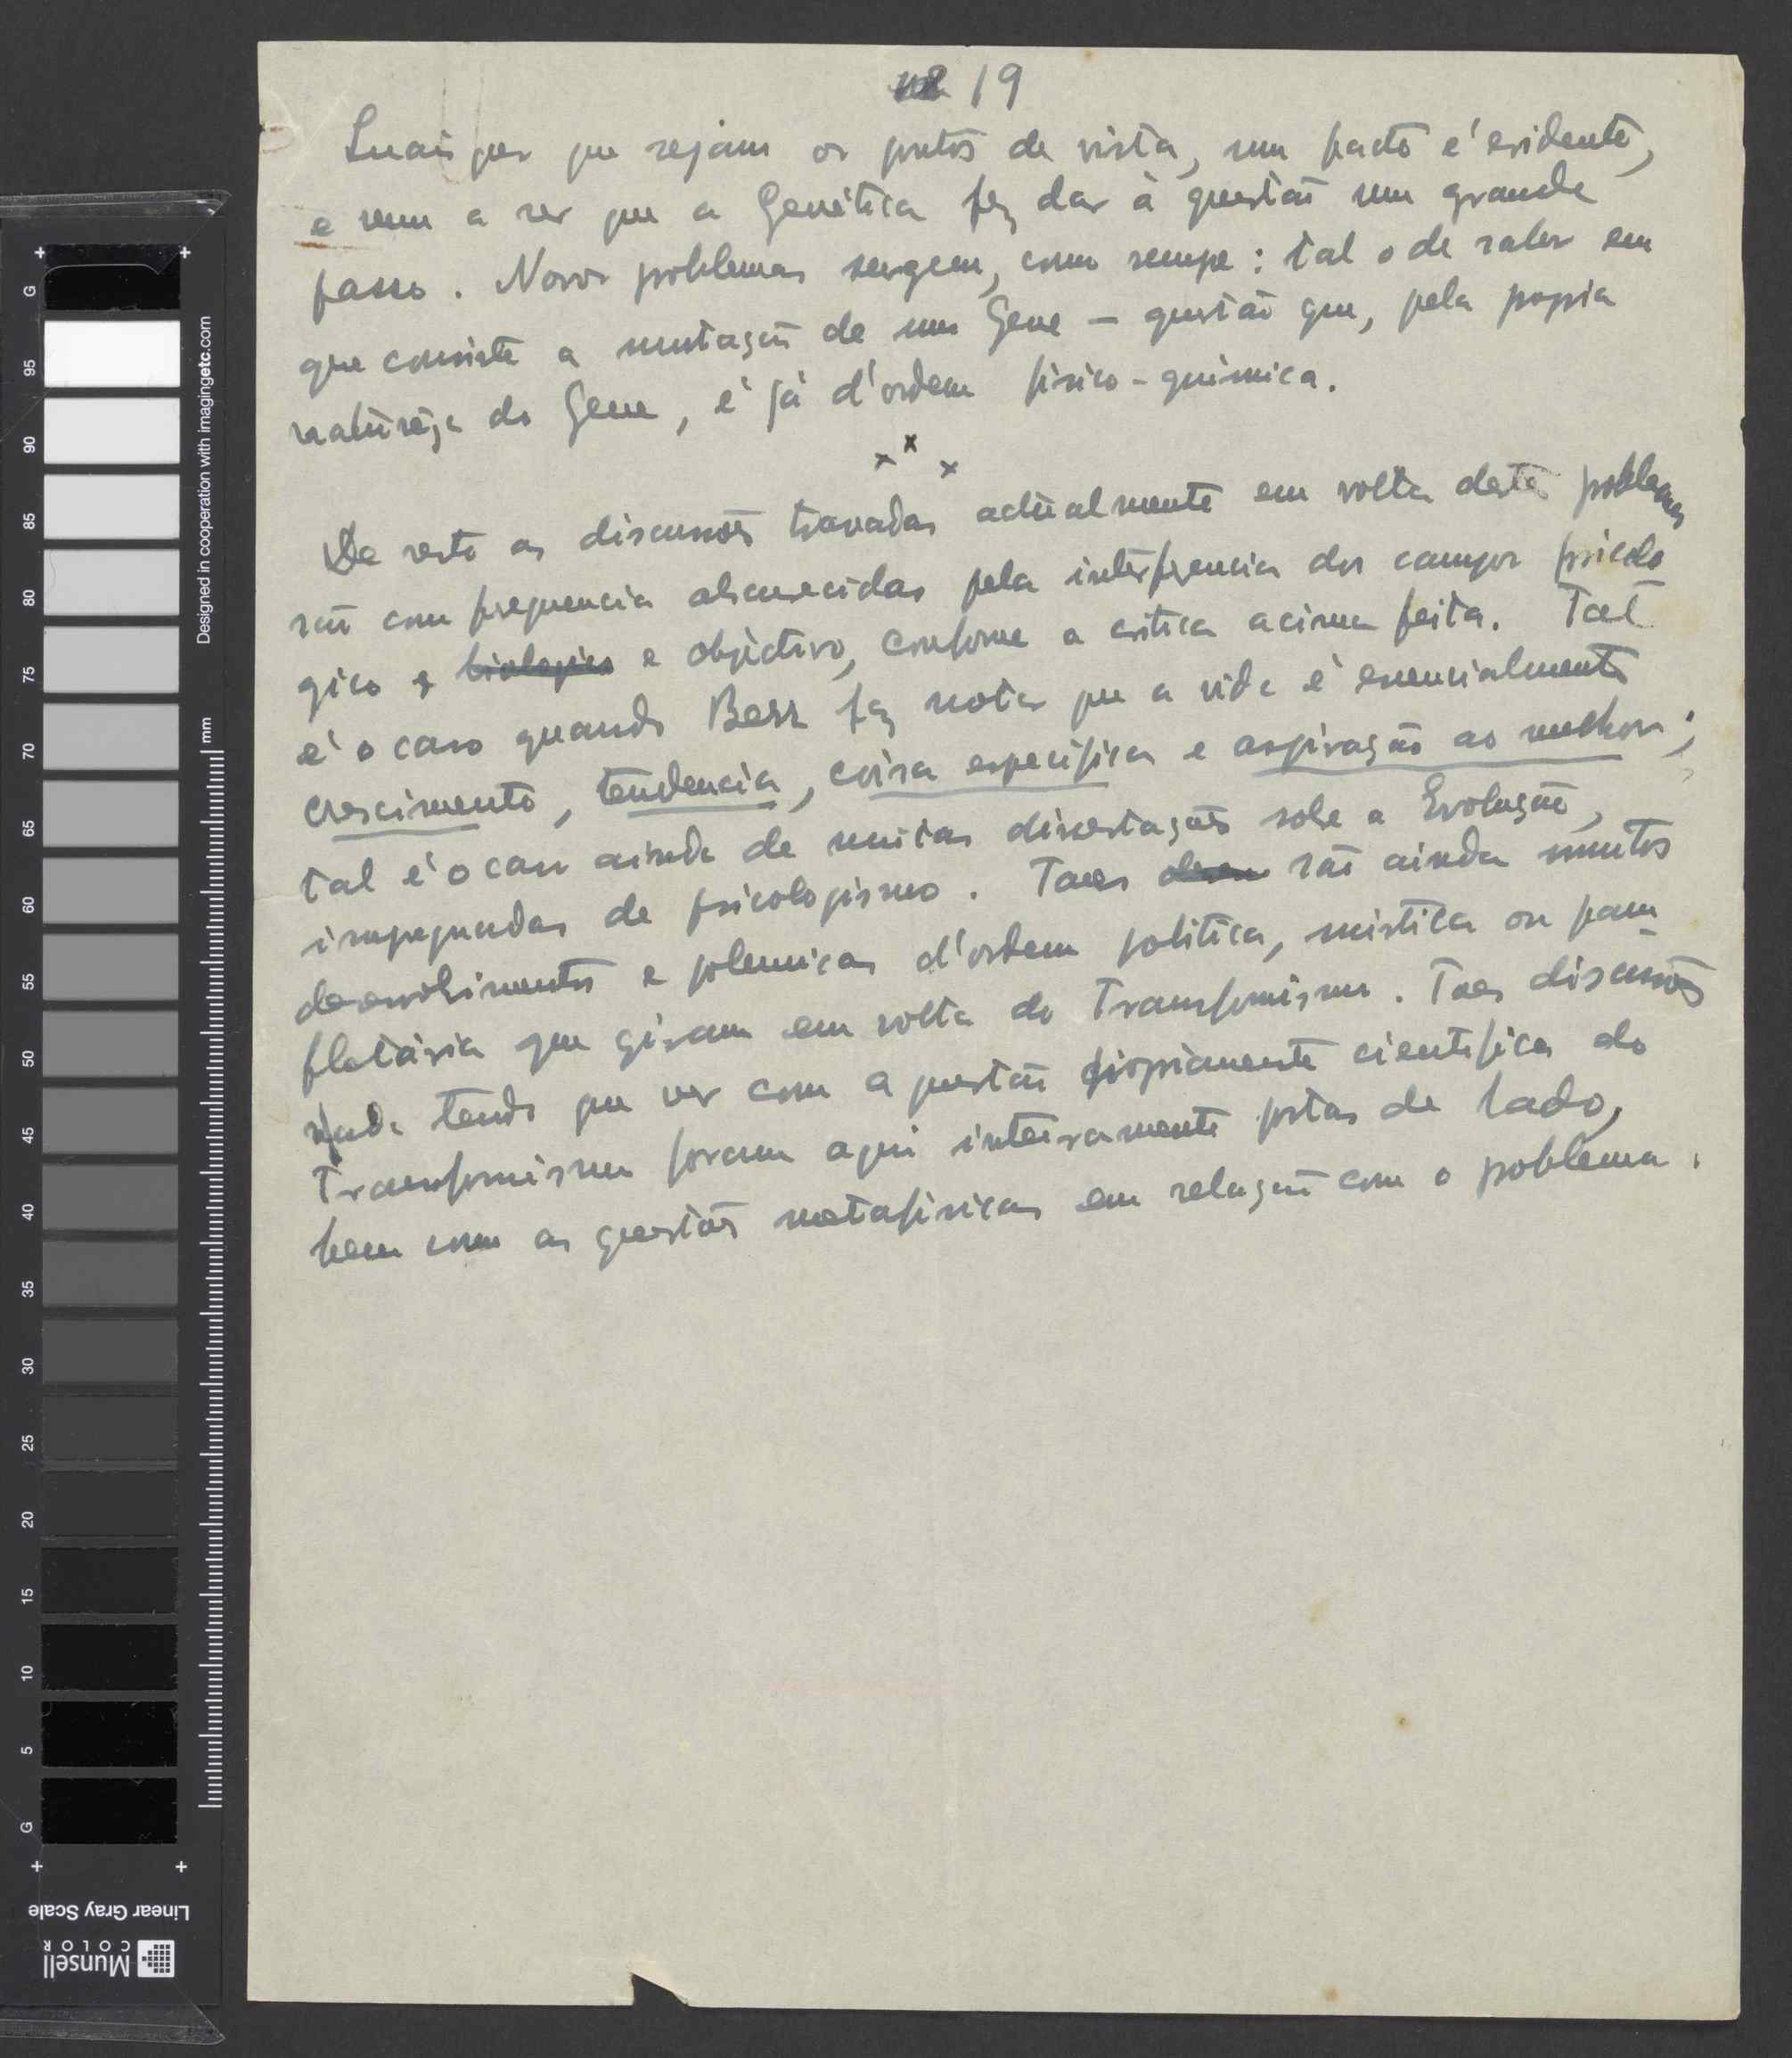 19
Quaisquer que sejam os pontos de vista, um facto é evidente,
e vem a ser que a Genética fez dar à questão um grande
passo. Novos problemas surgem, como sempre: tal o de saber em
que consiste a mutação de um Gene — questão que, pela propria
natureza do Gene, é já d'ordem fisico-quimica.
x x x
De resto as discussões travadas actualmente em volta destes problemas
são com frequencia obscurecidas pela interferencia dos campos psicoló
gico e biologico e objectivo, conforme a critica acima feita. Tal
é o caso quando Berr faz notar que a vida é essencialmente
crescimento, tendencia, coisa especifica e aspiração ao melhor;
tal é o caso ainda de muitas dissertações sobre a Evolução,
impregnadas de psicologismo. Taes são ainda muitos
desenvolvimentos e polemicas d'ordem politica, mistica ou pam
fletária que giram em volta do Transformismo. Taes discussões
nada tendo que ver com a questão propriamente cientifica do
Transformismo foram aqui inteiramente postas de lado,
bem como as questões metafisicas em relação com o problema.
Designed in cooperation with imagingetc.com
mm
G
95
90
85
80
75
70
65
60
55
50
45
40
35
30
25
20
15
10
5
G
Linear Gray Scale
Munsell
COLOR